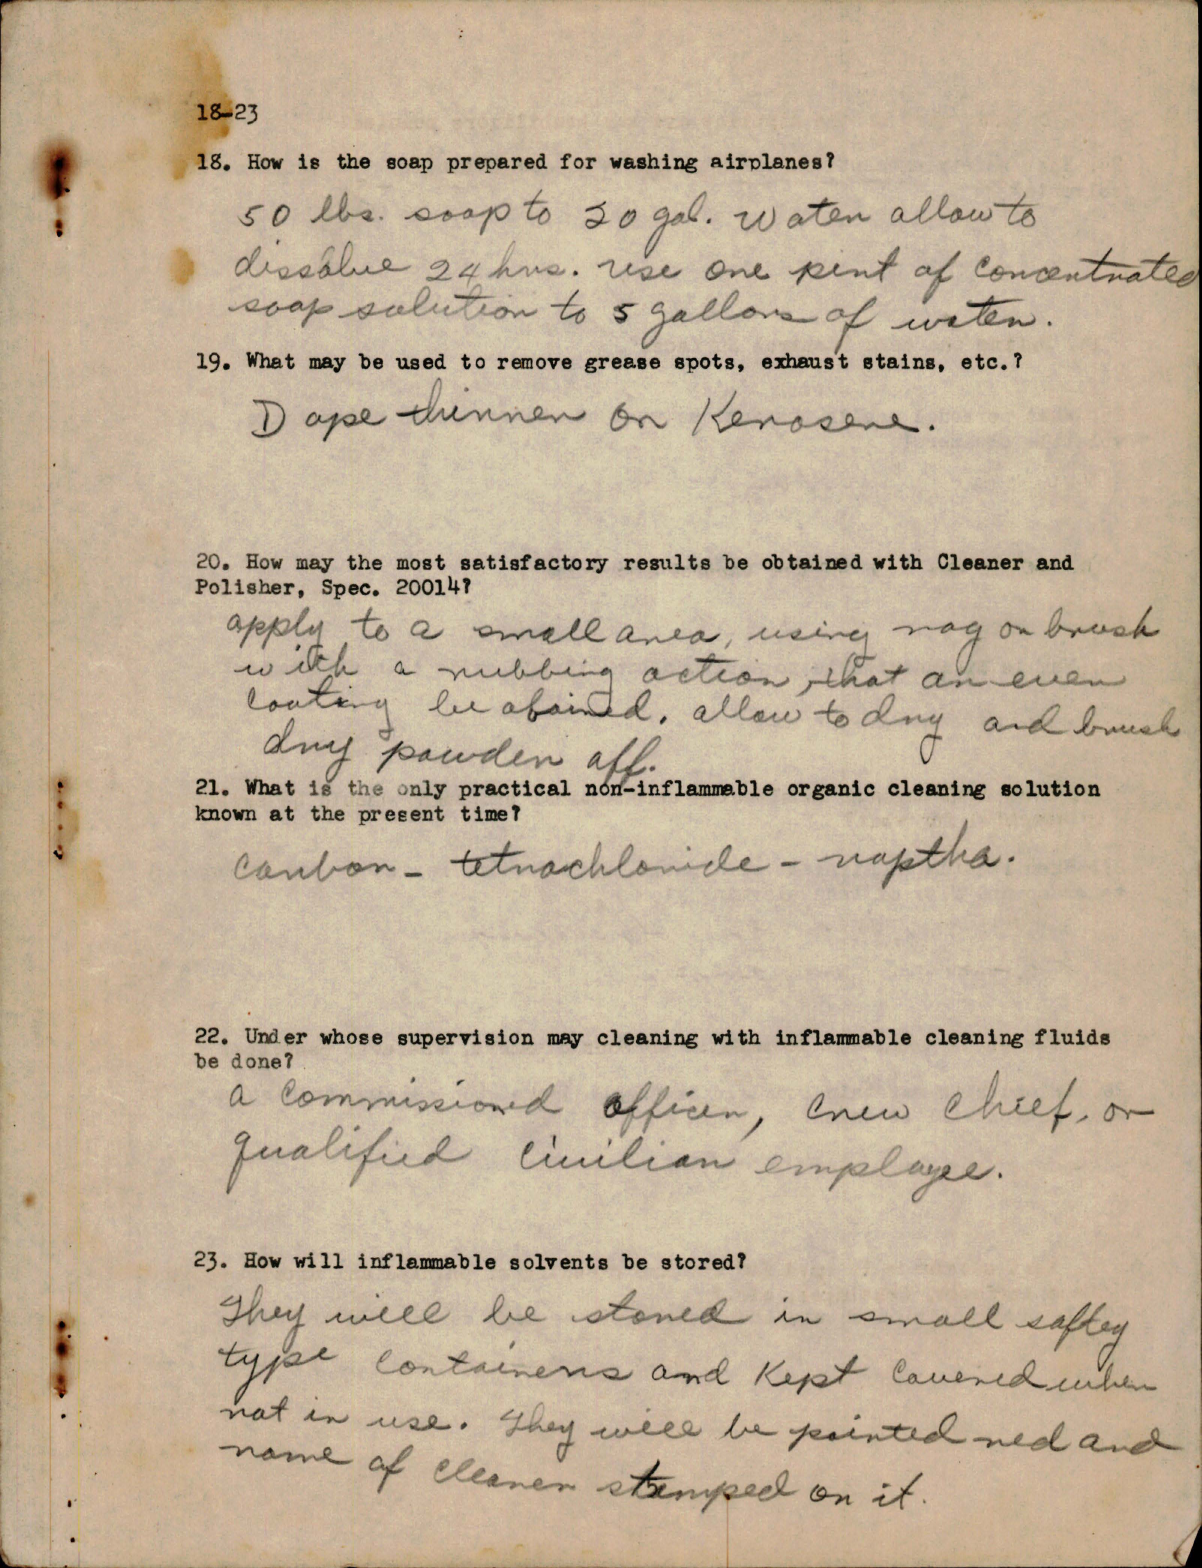 18-23
18. How is the soap prepared for washing airplanes?
50 lbs. soap to 20 gal. water allow to
dissolve 24 hrs. use one pint of concentrated
soap solution to 5 gallons of water.
19. What may be used to remove grease spots, exhaust stains, etc.?
Dope thinner or Kerosene.
20. How may the most satisfactory results be obtained with Cleaner and
Polisher, Spec. 20014?
apply to a small area, using rag or brush
with a rubbing action, that an even
coating be obained. allow to dry and brush
dry powder off.
21. What is the only practical non-inflammable organic cleaning solution
known at the present time?
carbon - tetrachloride - naptha.
22. Under whose supervision may cleaning with inflammable cleaning fluids
be done?
a commissioned officer, crew chief, or
qualified civilian employee.
23. How will inflammable solvents be stored?
They will be stored in small saftey
type containers and kept covered when
not in use. They will be painted red and
name of cleaner stamped on it.